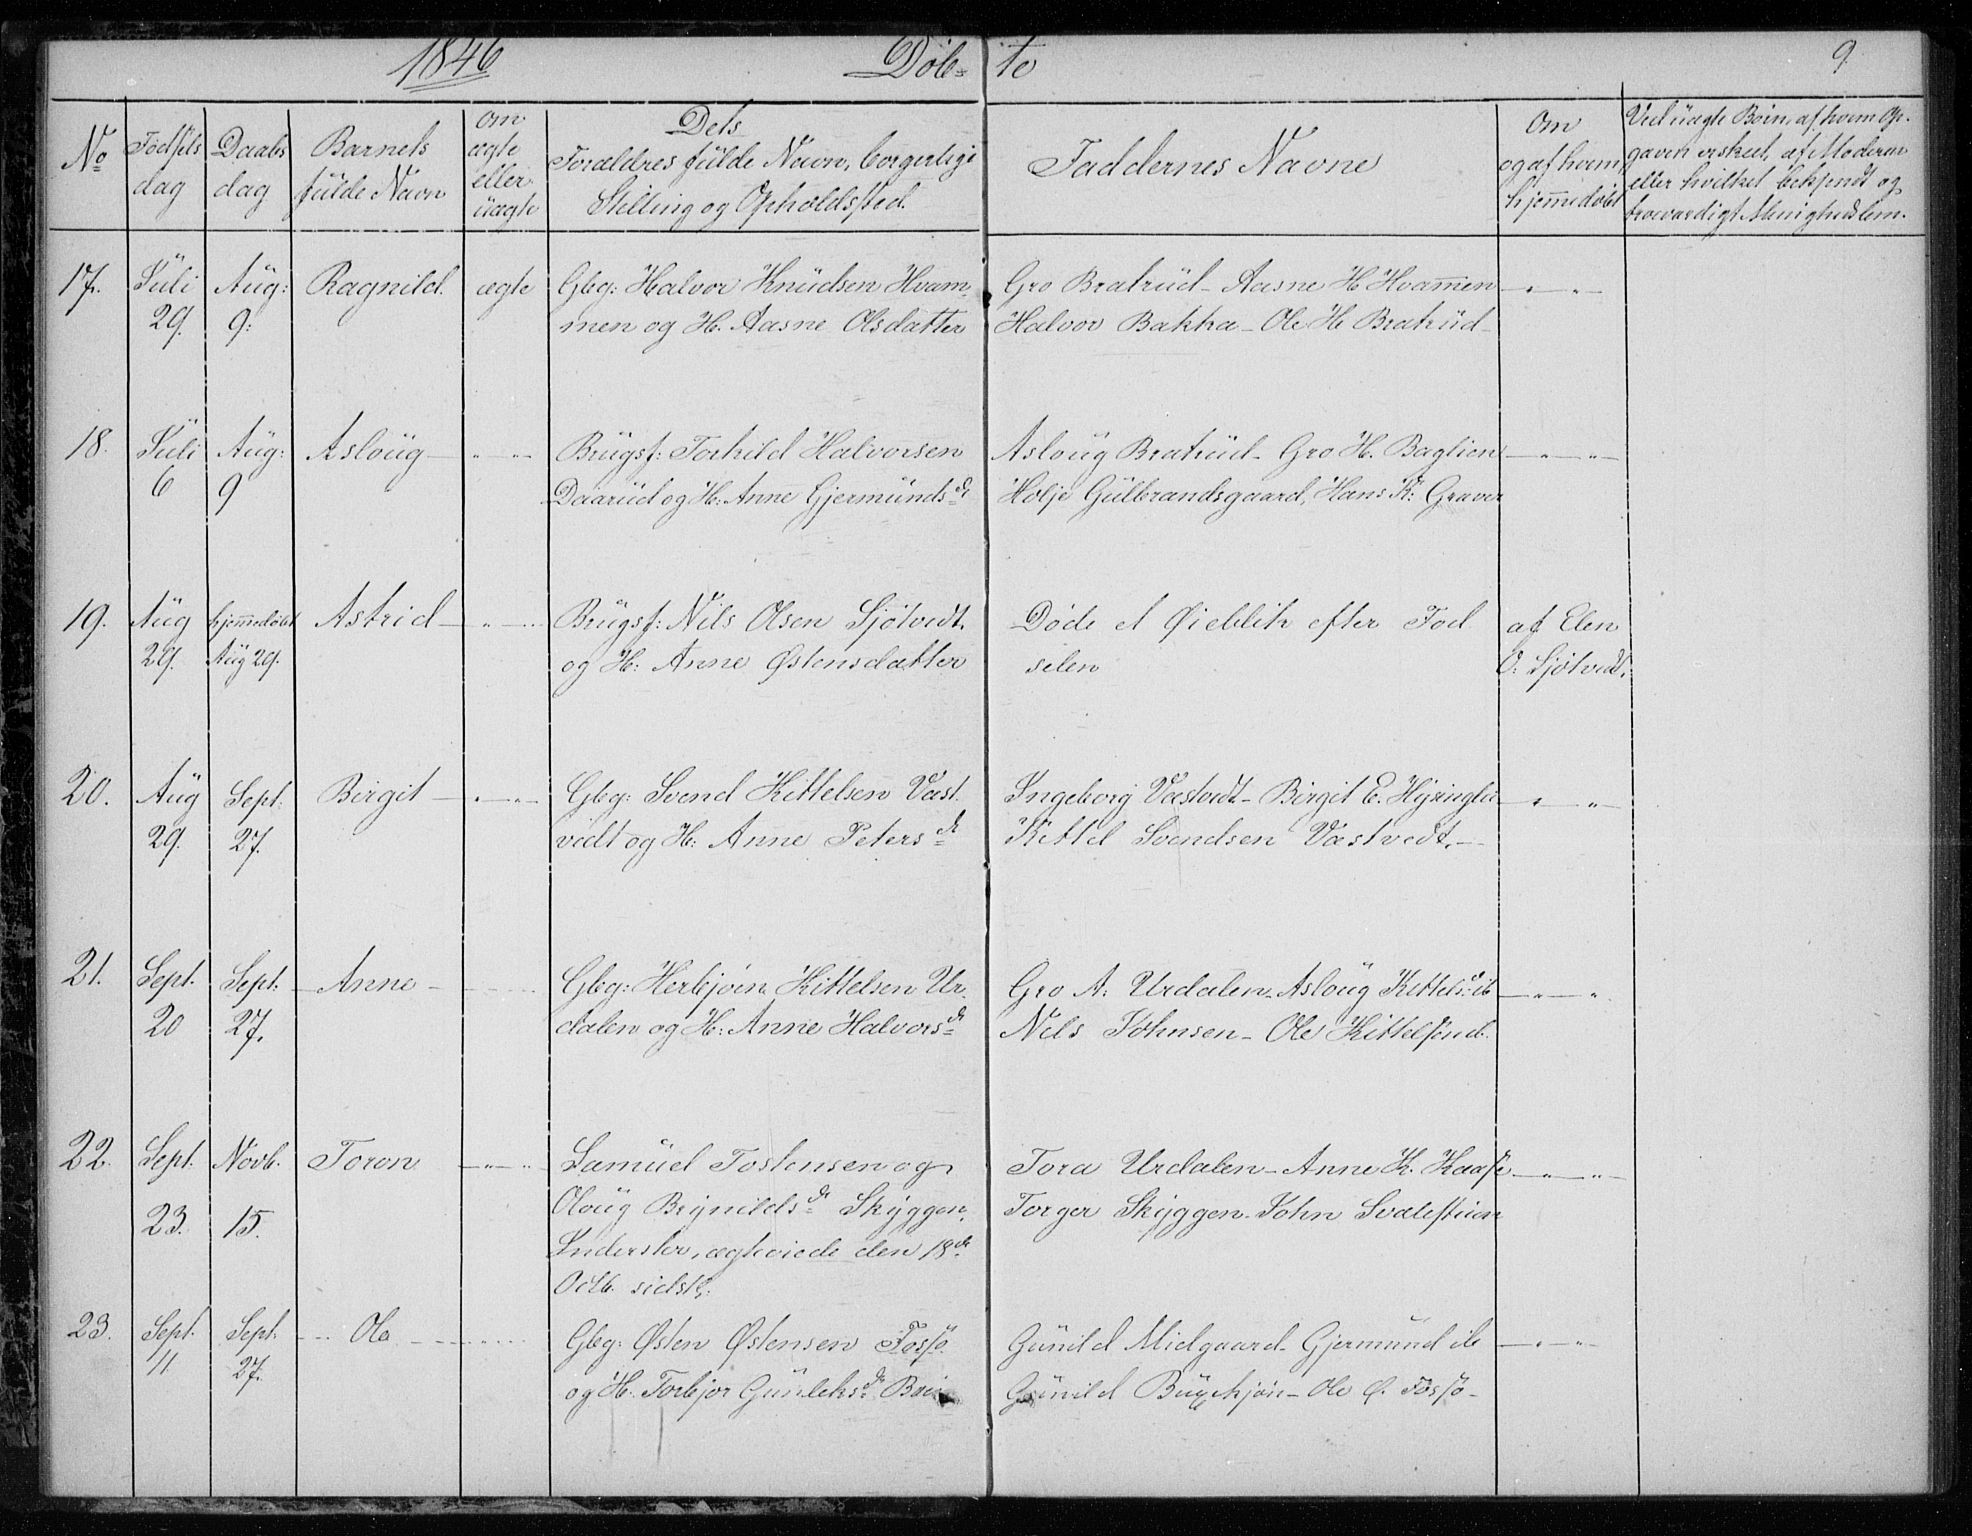 1846 Döb- te 9
No Födsels dag Daabs dag Barnets fulde Navn Om ægte eller uægte Dets Forældres fulde Navn, borgerlige Stilling og Opholdssted. Faddernes Navne Om og af hvem hjem̅edøbt Ved uægte Børn, af hvem Op- gaven er skeet, af Moderen eller hvilket bekjendt og troværdigt Menighedslem.
17. Juli Aug: Ragnild. ægte Gbg: Halvor Knudsen Hvam- Gro Bratrud - Aasne H Hvam̅en — „ — „
29. 9: men og H. Aasne Olsdatter Halvor Bakka - Ole H. Bratrud -
18. Juli Aug: Asloug — „ — „ Brugsf: Torkild Halvorsen Asloug Bratrud - Gro H. Baglien — „ — „
6 9 Daarud og H: Anne Gjermundsdr Holje Gulbrandsgaard, Hans K: Graver
19. Aug hjem̅edöbt Astrid — „ — „ Brugsf: Nils Olsen Ljötvedt. Döde et Øieblik efter Fød af Elen
29. Aug 29. og H: Anne Østensdatter selen O: Ljötvedt.
20. Aug Sept: Birgit — „ — „ Gbg: Svend Kittelsen Væst. Ingeborg Væstvedt - Birgit E. — „ — „
29. 27. vedt og H: Anne Petersdr Kittel Svendsen Væstvedt. —
21. Sept. Sept. Anne - Gbg: Herbjörn Kittelsen Ur- Gro A: Urdalen - Asloug Kittelsdr ib — „ — „
20 27. dalen og H: Anne Halvorsdr Nels Johnsen - Ole Kittelsen ib.
22. Sept. Novb. Toron — „ — „ Samuel Tostensen og Tora Urdalen - Anne K. Kaase — „ — „
23. 15. Oloug Brynildsdr Skyggen, Torger Skyggen - John
Inderster, ægteviede den 18de
Octb. sidstl.
23. Sept. Sept: Ole Gbg: Østen Østensen Fosso. Gunild Midgaard - Gjermund ib — „ — „
11 27. og H. Torbjor Gunleksdr Gunild - Ole Ø. Fosso -